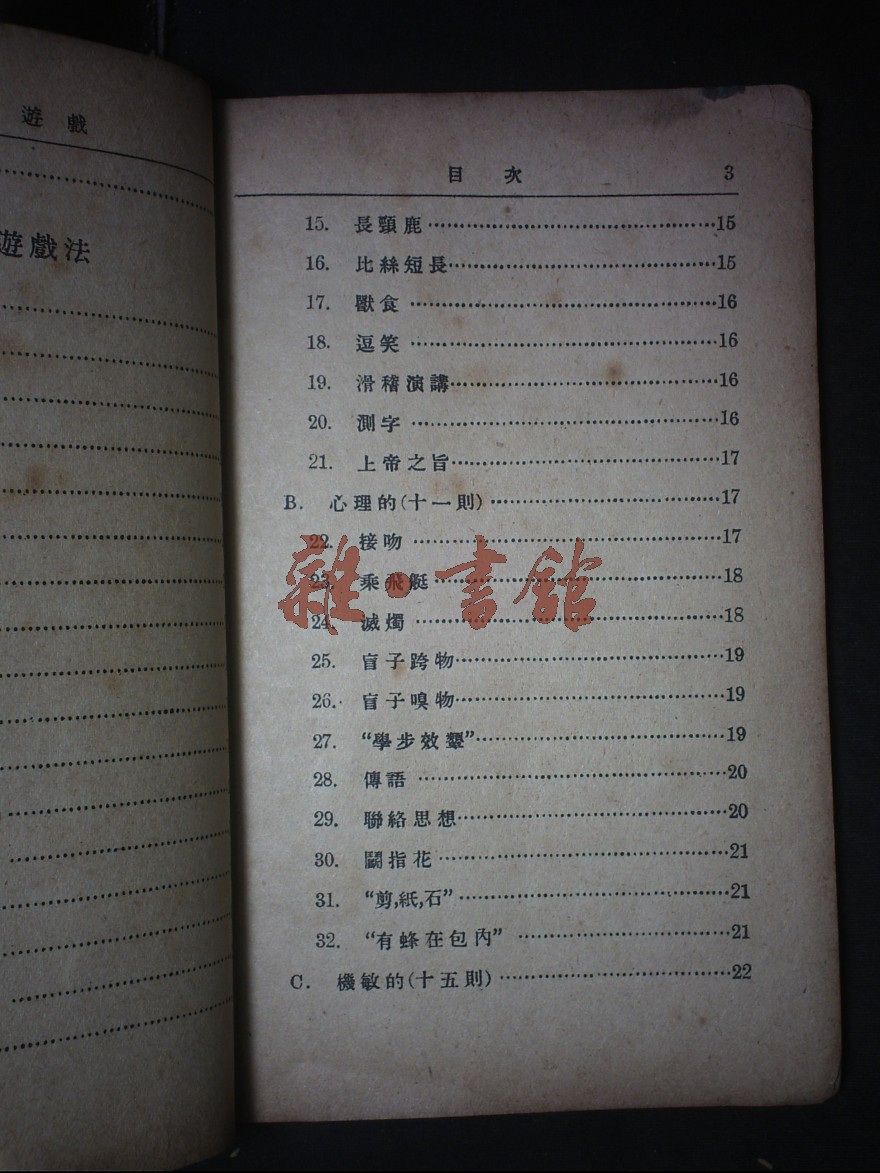 遊戲
遊戲法
目次 3
15. 長頸鹿 15
16. 比絲短長 15
17. 獸食 16
18. 逗笑 16
19. 滑稽演講 16
20. 測字 16
21. 上帝之旨 17
B. 心理的(十一則) 17
22. 接吻 17
23. 乘飛艇 18
24. 滅燭 18
雜·書館
25. 盲子跨物 19
26. 盲子嗅物 19
27. “學步效顰” 19
28. 傳語 20
29. 聯絡思想 20
30. 鬭指花 21
31. “剪,紙,石” 21
32. “有蜂在包內” 21
C. 機敏的(十五則) 22